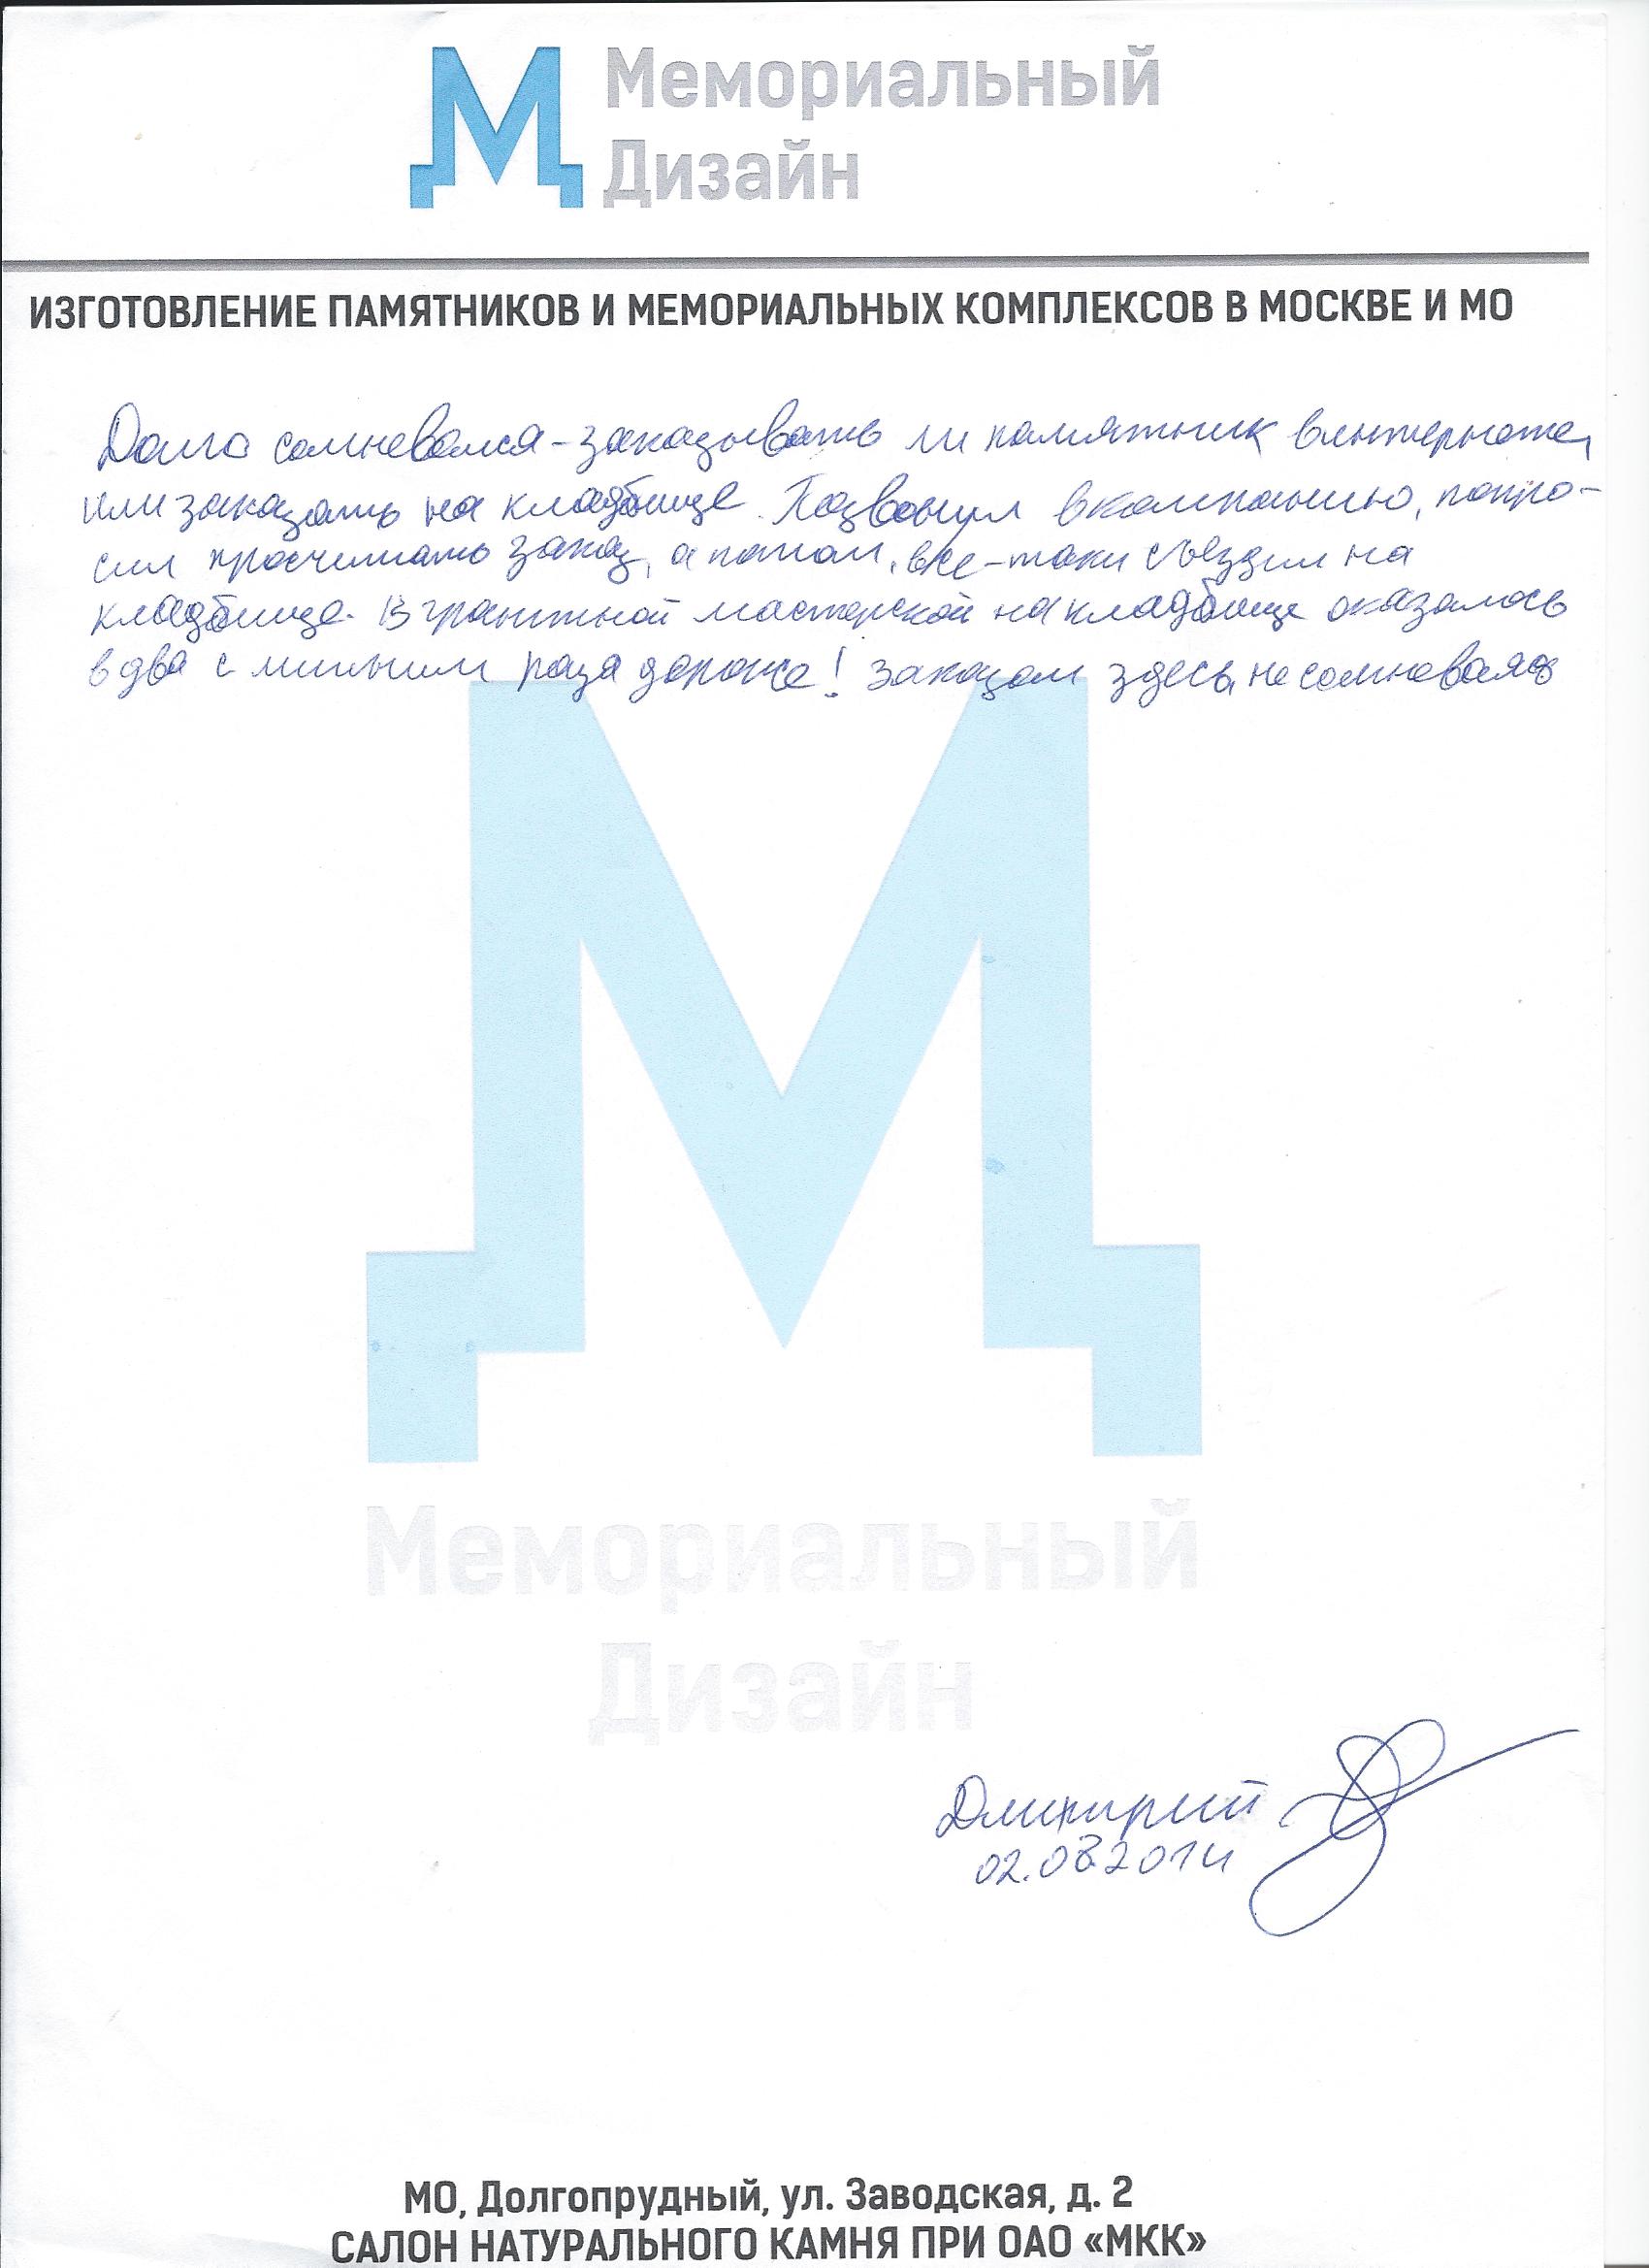 Мемориальный
Дизайн
ИЗГОТОВЛЕНИЕ ПАМЯТНИКОВ И МЕМОРИАЛЬНЫХ КОМПЛЕКСОВ В МОСКВЕ И МО
Долго сомневался - заказывать ли памятник в интернете,
или заказать на кладбище. Позвонил в компанию, попро-
сил просчитать заказ, а потом, все-таки съездил на
кладбище. В гранитной мастерской на кладбище оказалось
в два с лишним раза дороже! Заказал здесь, не сомневаясь
Мемориальный
Дизайн
Дмитрий
02.08.2014
МО, Долгопрудный, ул. Заводская, д. 2
САЛОН НАТУРАЛЬНОГО КАМНЯ ПРИ ОАО «МКК»